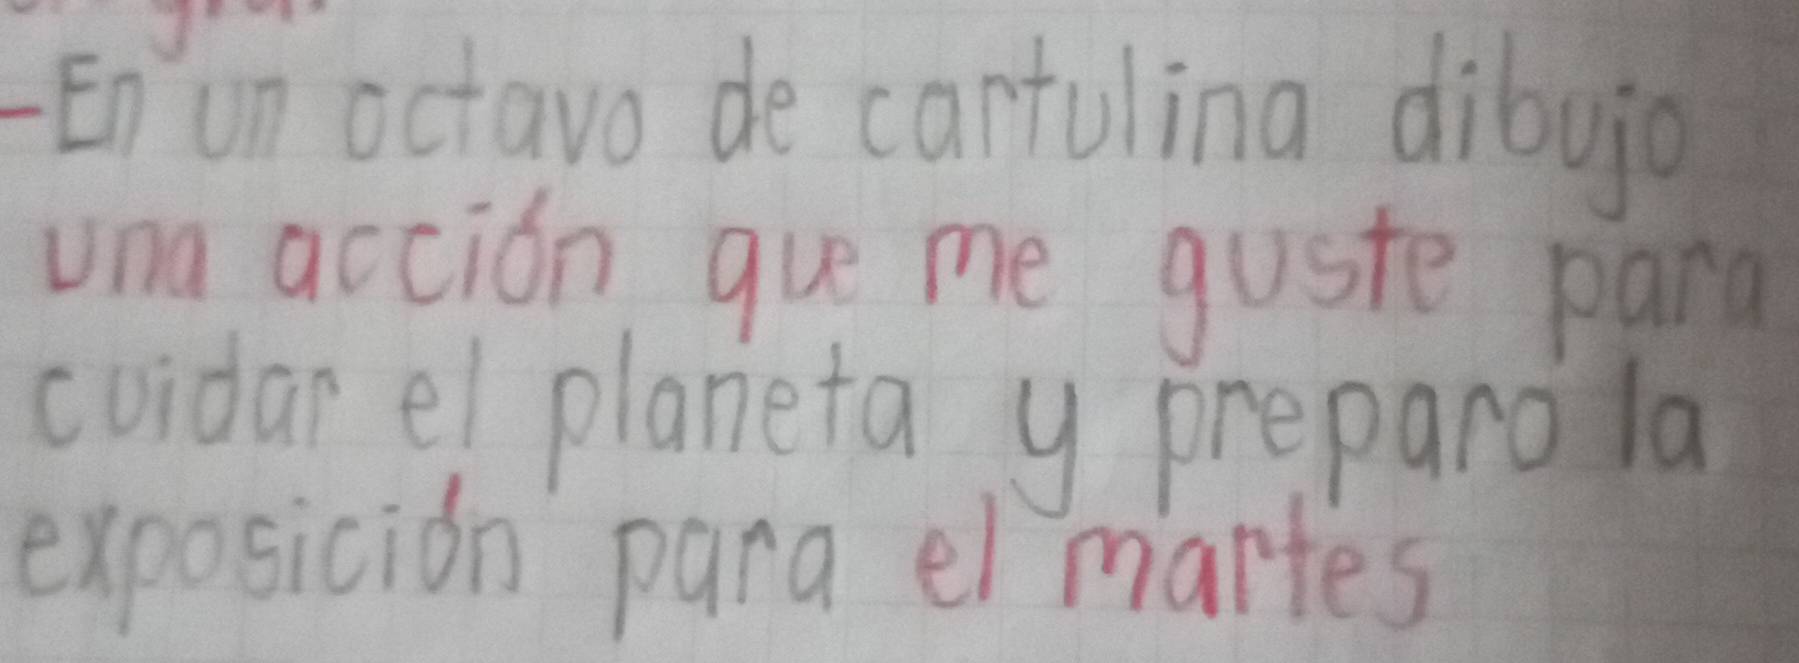 -En un octavo de cartulina dibujo
una acción que me guste para
cuidar el planeta y preparo la
exposición para el martes